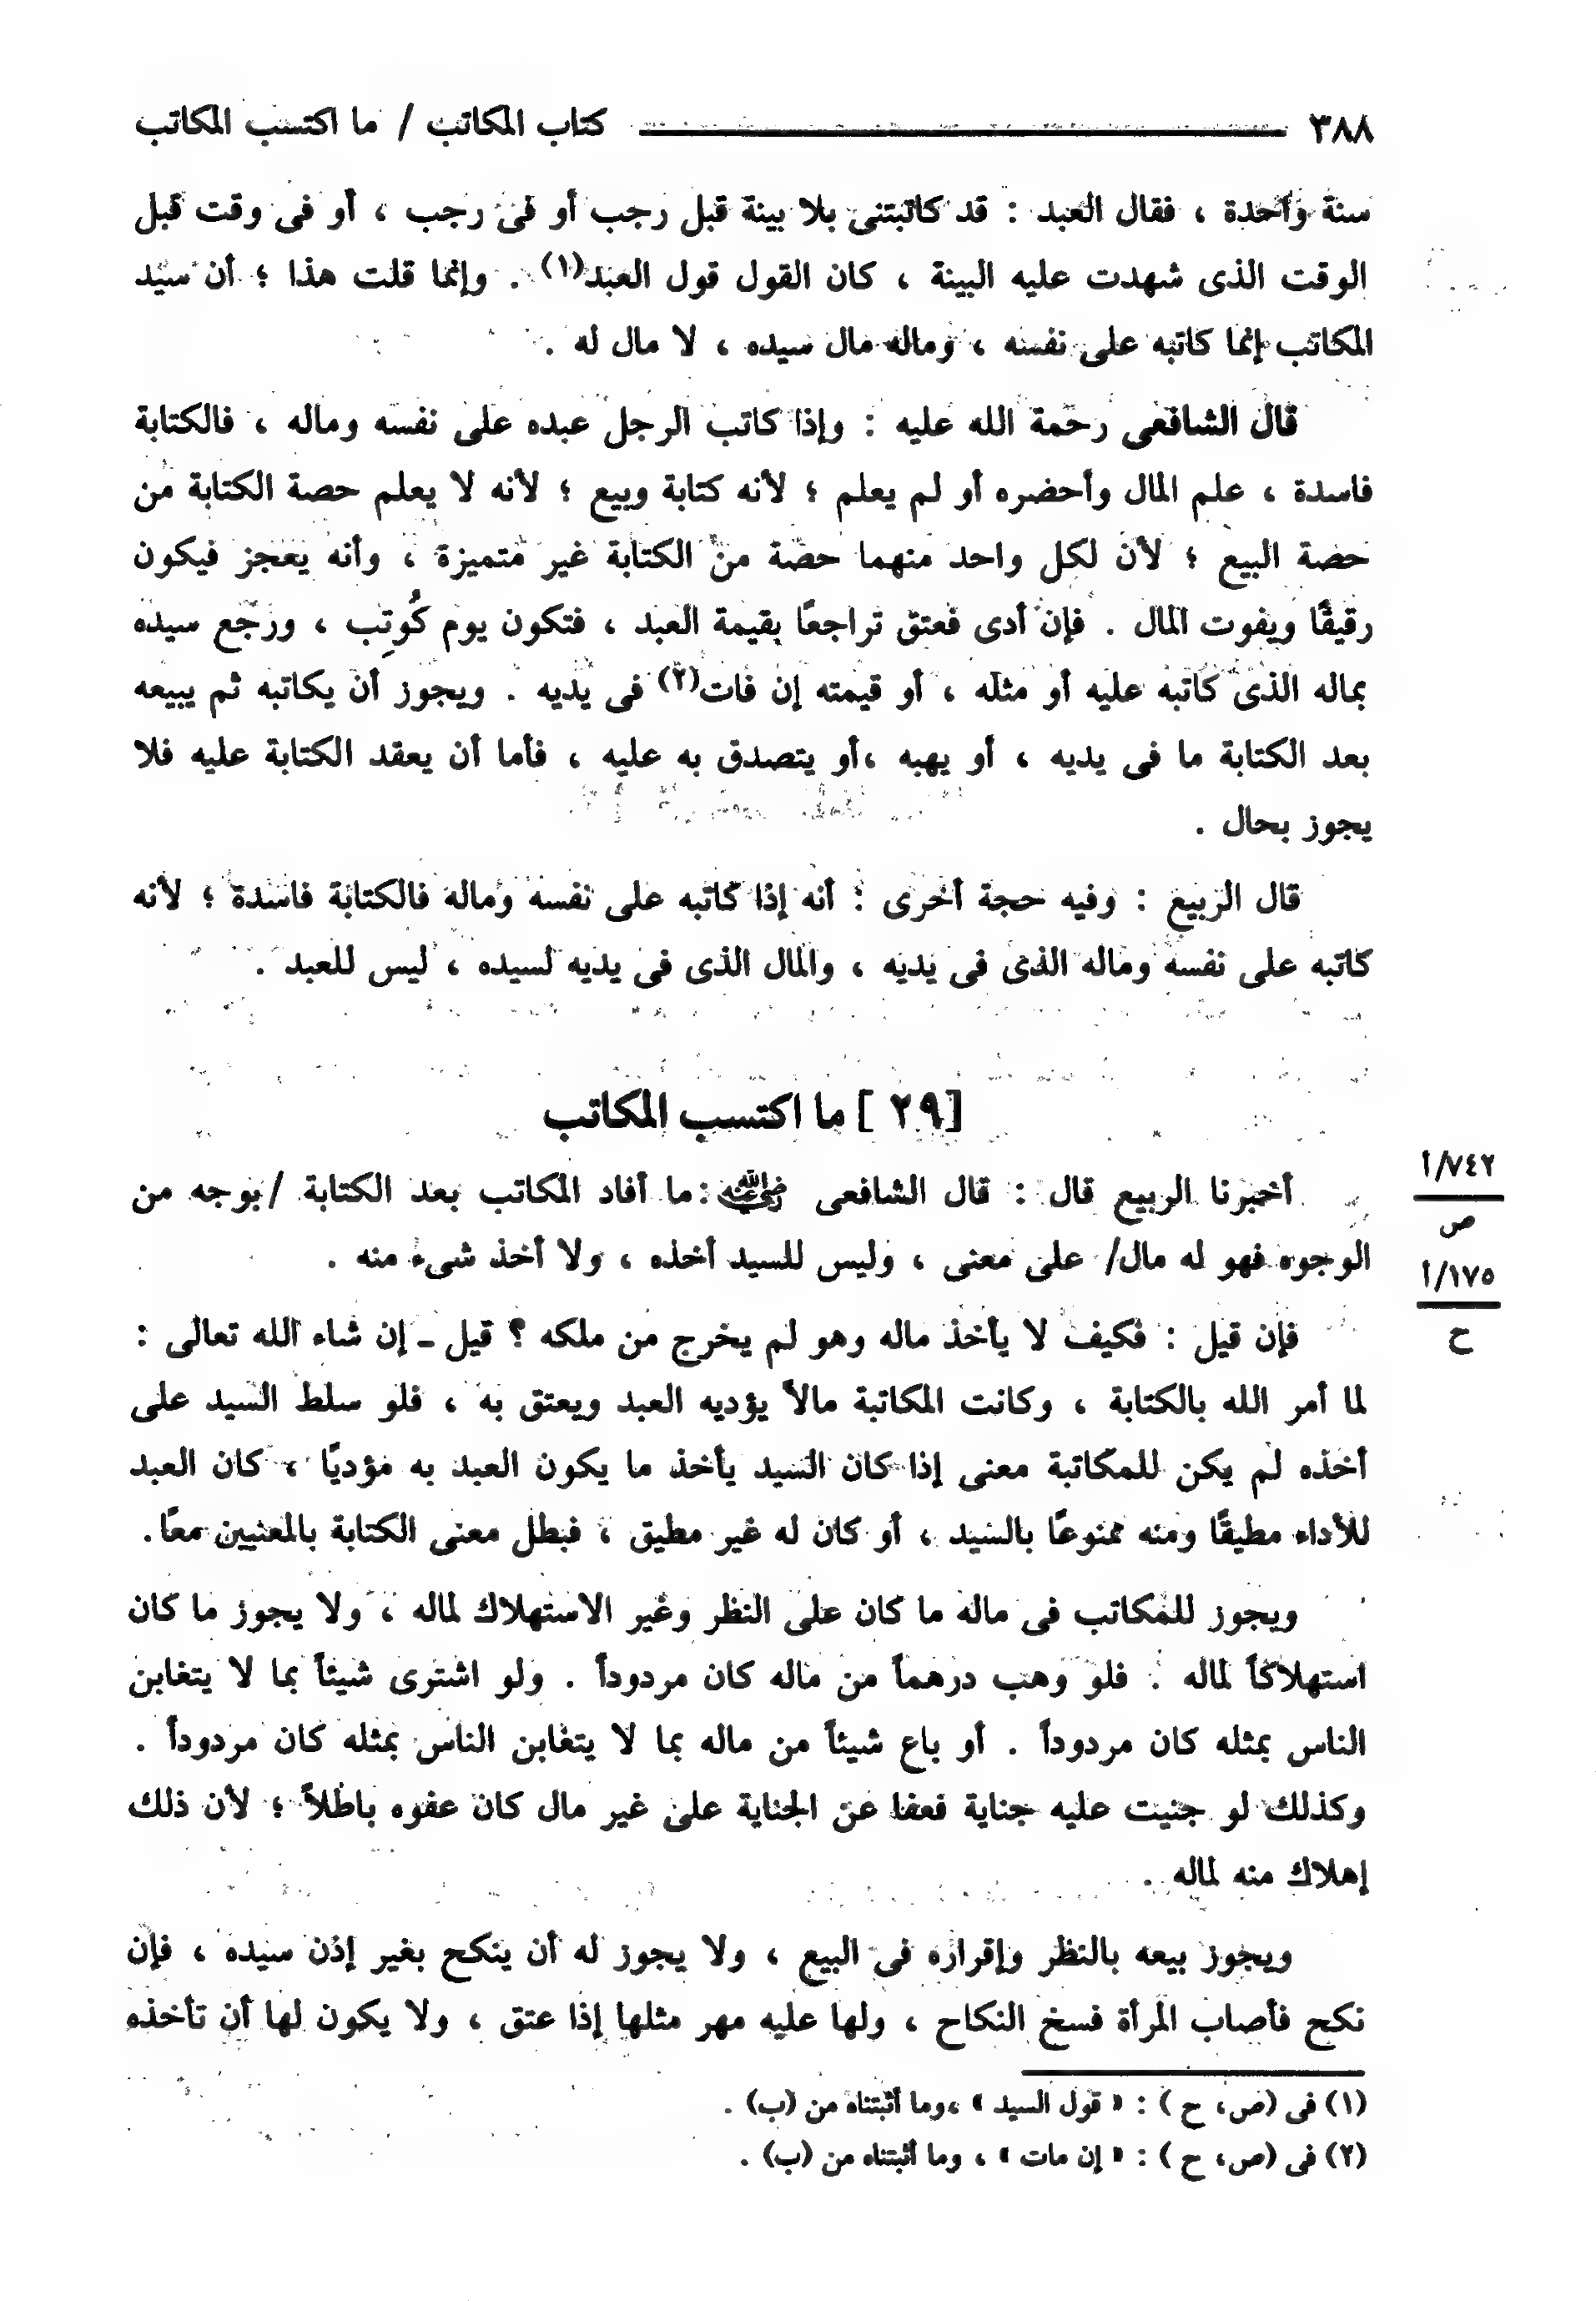 ٣٨٨ كتاب المكاتب / ما اكتسب المكاتب
سنة واحدة ، فقال العبد : قد كاتبتنى بلا بينة قبل رجب أو فى رجب ، أو فى وقت قبل
الوقت الذى شهدت عليه البينة ، كان القول قول العبد(١) . وإنما قلت هذا ؛ أن سيد
المكاتب إنما كاتبه على نفسه ، وماله مال سيده ، لا مال له .
قال الشافعى رحمة الله عليه : وإذا كاتب الرجل عبده على نفسه وماله ، فالكتابة
فاسدة ، علم المال وأحضره أو لم يعلم ؛ لأنه كتابة وبيع ؛ لأنه لا يعلم حصة الكتابة من
حصة البيع ؛ لأن لكل واحد منهما حصة من الكتابة غير متميزة ، وأنه يعجز فيكون
رقيقًا ويفوت المال . فإن أدى فعتق تراجعًا بقيمة العبد ، فتكون يوم كُوتِب ، ورجع سيده
بماله الذى كاتبه عليه أو مثله ، أو قيمته إن فات(٢) فى يديه . ويجوز أن يكاتبه ثم يبيعه
بعد الكتابة ما فى يديه ، أو يهبه ،أو يتصدق به عليه ، فأما أن يعقد الكتابة عليه فلا
يجوز بحال .
قال الربيع : وفيه حجة أخرى : أنه إذا كاتبه على نفسه وماله فالكتابة فاسدة ؛ لأنه
كاتبه على نفسه وماله الذى فى يديه ، والمال الذى فى يديه لسيده ، ليس للعبد .
[٢٩ ] ما اكتسب المكاتب
٧٤٢/أ
ص
أخبرنا الربيع قال : قال الشافعى رضي الله عنه :ما أفاد المكاتب بعد الكتابة /بوجه من
الوجوه فهو له مال/ على معنى ، وليس للسيد أخذه ، ولا أخذ شىء منه .
١٧٥/أ
ح
فإن قيل : فكيف لا يأخذ ماله وهو لم يخرج من ملكه ؟ قيل ـ إن شاء الله تعالى :
لما أمر الله بالكتابة ، وكانت المكاتبة مالاً يؤديه العبد ويعتق به ، فلو سلط السيد على
أخذه لم يكن للمكاتبة معنى إذا كان السيد يأخذ ما يكون العبد به مؤديًا ، كان العبد
للأداء مطيقًا ومنه ممنوعًا بالسيد ، أو كان له غير مطيق ، فبطل معنى الكتابة بالمعنيين معًا.
ويجوز للمكاتب فى ماله ما كان على النظر وغير الاستهلاك لماله ، ولا يجوز ما كان
استهلاكاً لماله . فلو وهب درهماً من ماله كان مردوداً . ولو اشترى شيئاً بما لا يتغابن
الناس بمثله كان مردوداً . أو باع شيئاً من ماله بما لا يتغابن الناس بمثله كان مردوداً .
وكذلك لو جنيت عليه جناية فعفا عن الجناية على غير مال كان عفوه باطلاً ؛ لأن ذلك
إهلاك منه لماله .
ويجوز بيعه بالنظر وإقراره فى البيع ، ولا يجوز له أن ينكح بغير إذن سيده ، فإن
نكح فأصاب المرأة فسخ النكاح ، ولها عليه مهر مثلها إذا عتق ، ولا يكون لها أن تأخذه
(١) فى (ص، ح ) : « قول السيد » ،وما أثبتناه من (ب) .
(٢) فى (ص، ح ) : « إن مات » ، وما أثبتناه من (ب) .